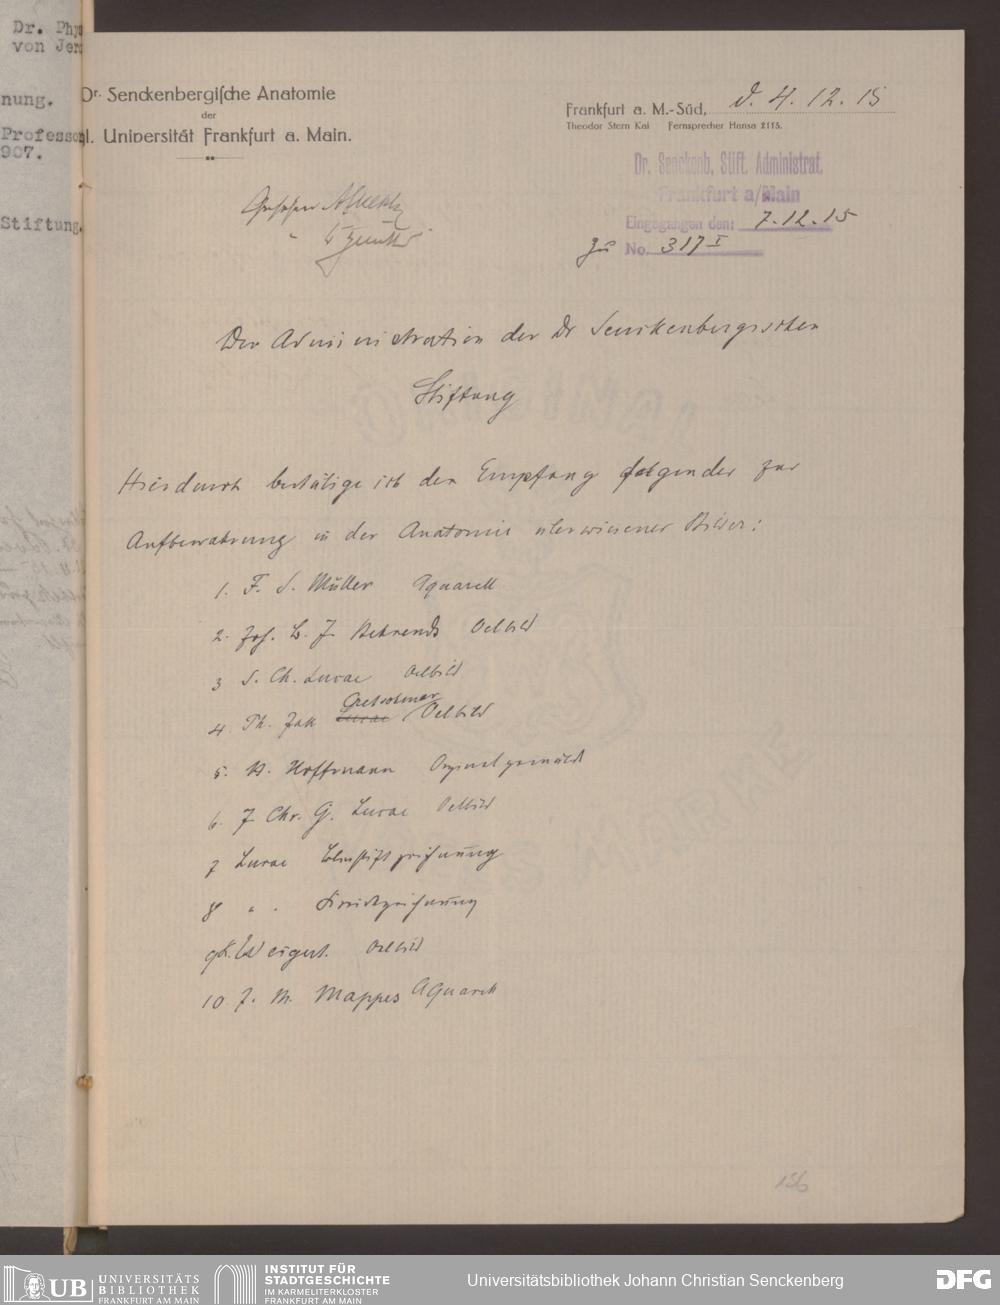 Dr. Phys
von Jer
nung.
Professo
907.
Stiftung.
Dr. Senckenbergische Anatomie
der
l. Universität Frankfurt a. Main.
Frankfurt a. M.-Süd, d. 4. 12. 15
Theodor Stern Kai Fernsprecher Hansa 2115.
Dr. Senckenb. Stift. Administrat.
Frankfurt a/Main
Eingegangen den: 7.12.15
zu No. 317 I
Gesehen
Der Administration der Dr Senckenbergischen
Stiftung
Hierdurch bestätige ich den Empfang folgender zur
Aufbewahrung in der Anatomie überwiesener Bilder:
1. F. S. Müller Aquarell
2. Joh. B. J. Behrends Oelbild
3 S. Ch. Lucae Oelbild
Cretschmar
4. Ph. Jak Lucae Oelbild
5. H. Hoffmann Originalgemälde
6. J Chr. G. Lucae Oelbild
7 Lucae Bleistiftzeichnung
8 " . Kreidezeichnung
9 K. Weigert. Oelbild
10 J. M. Mappes Aquarell
156
UB UNIVERSITÄTS
BIBLIOTHEK
FRANKFURT AM MAIN
INSTITUT FÜR
STADTGESCHICHTE
IM KARMELITERKLOSTER
FRANKFURT AM MAIN
Universitätsbibliothek Johann Christian Senckenberg
DFG